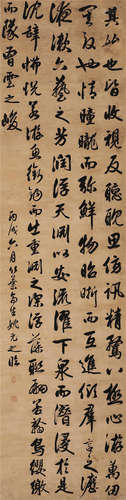 其始也皆收視反聽耽思傍訊精騖八極心游萬
仞其致也情曈曨而彌鮮物昭晰而互進傾群言之瀝
液漱六藝之芳潤浮天淵以安流濯下泉而潛浸於是
沈辭怫悅若游魚銜鉤而出重淵之深浮藻聯翩若翰鳥纓繳
而墜曾雲之峻
丙戌六月竹葉亭生姚元之臨